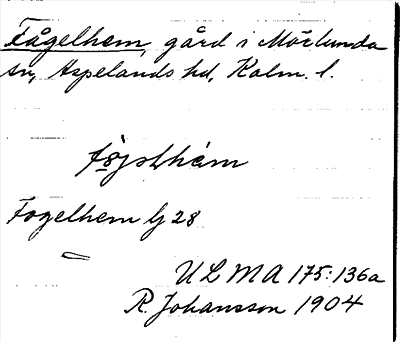 Fågelhem, gård i Mörlunda
sn, Aspelands hd, Kalm. l.
Fogelhem lj 28
ULMA 175:136a
R. Johansson 1904